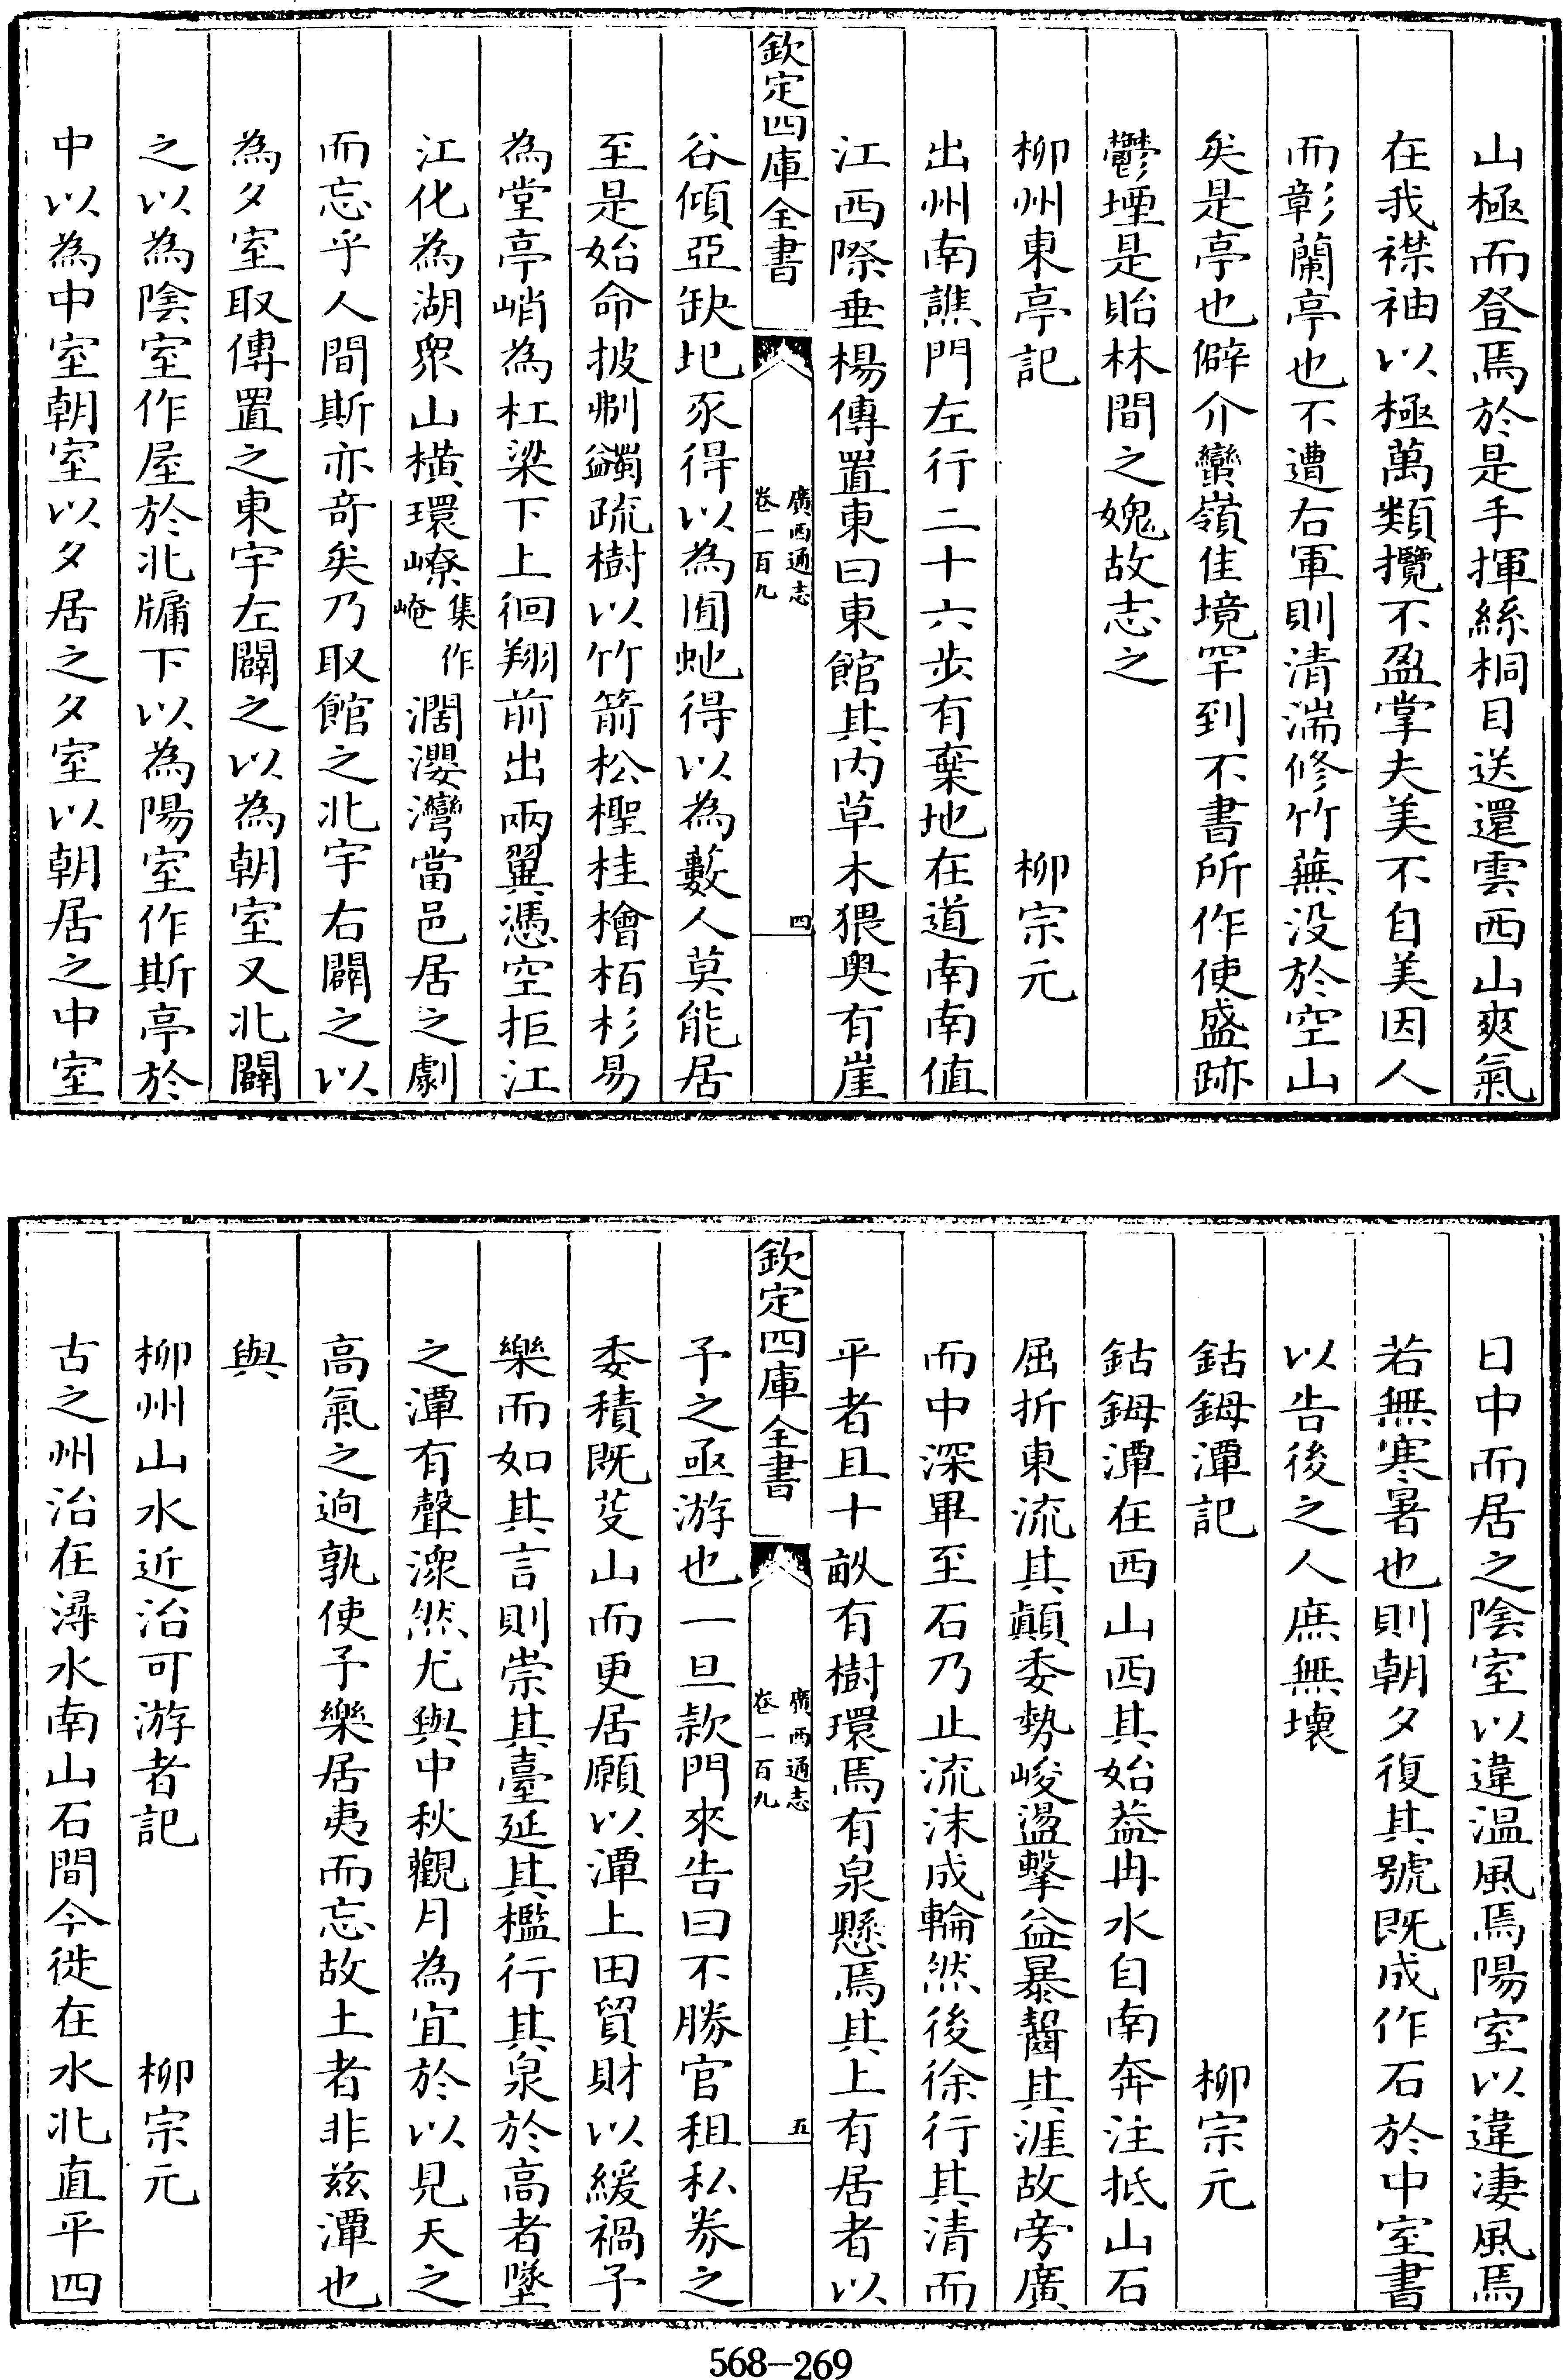 山極而登焉於是手揮絲桐目送還雲西山爽氣
在我襟袖以極萬類攬不盈掌夫美不自美因人
而彰蘭亭也不遭右軍則清湍修竹蕪没於空山
矣是亭也僻介蠻嶺佳境罕到不書所作使盛跡
鬱堙是貽林間之媿故志之
柳州東亭記 柳宗元
出州南譙門左行二十六步有棄地在道南南值
江西際垂楊傳置東曰東館其内草木猥奥有崖
欽定四庫全書 廣西通志 卷一百九 四
谷傾亞缺圯豕得以為囿虵得以為藪人莫能居
至是始命披刜蠲疏樹以竹箭松檉桂檜栢杉易
為堂亭峭為杠梁下上徊翔前出兩翼憑空拒江
江化為湖衆山横環嶚集作崦濶瀴灣當邑居之劇
而忘乎人間斯亦竒矣乃取館之北宇右闢之以
為夕室取傳置之東宇左闢之以為朝室又北闢
之以為陰室作屋於北牖下以為陽室作斯亭於
中以為中室朝室以夕居之夕室以朝居之中室
日中而居之陰室以違温風焉陽室以違凄風焉
若無寒暑也則朝夕復其號既成作石於中室書
以告後之人庶無壊
鈷鉧潭記 柳宗元
鈷鉧潭在西山西其始葢冉水自南奔注抵山石
屈折東流其顛委勢峻盪擊益暴齧其涯故旁廣
而中深畢至石乃止流沫成輪然後徐行其清而
平者且十畝有樹環焉有泉懸焉其上有居者以
欽定四庫全書 廣西通志 卷一百九 五
予之亟游也一旦款門來告曰不勝官租私劵之
委積既芟山而更居願以潭上田貿財以緩禍予
樂而如其言則崇其臺延其檻行其泉於高者墜
之潭有聲潨然尤與中秋觀月為宜於以見天之
高氣之逈孰使予樂居夷而忘故土者非兹潭也
與
柳州山水近治可游者記 柳宗元
古之州治在潯水南山石間今徙在水北直平四
568-269